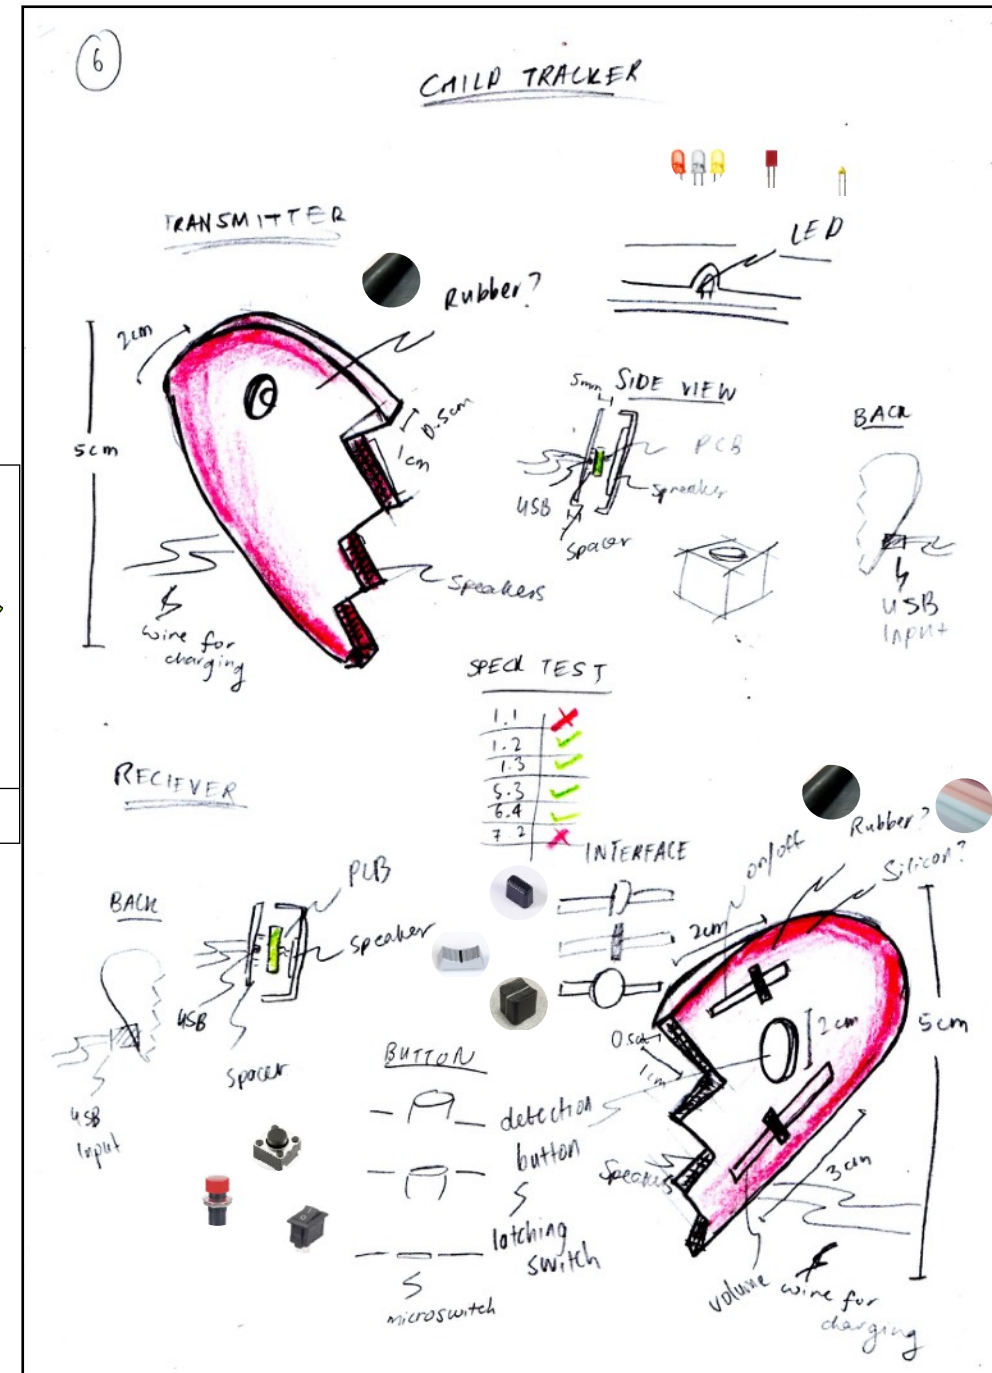 6
CHILD TRACKER
TRANSMITTER
LED
Rubber?
2cm
0.5cm
1cm
5cm
Speakers
wire for
charging
SIDE VIEW
5mm
PCB
Spreaker
USB
Spacer
BACK
USB
Input
SPECK TEST
1.1
1.2
1.3
5.3
6.4
7.2
RECIEVER
BACK
USB
Input
PCB
Speaker
USB
Spacer
INTERFACE
BUTTON
detection
button
latching
switch
microswitch
on/off
Rubber?
Silicon?
2cm
0.5cm
1cm
2cm
5cm
3cm
Speakers
volume
wire for
charging